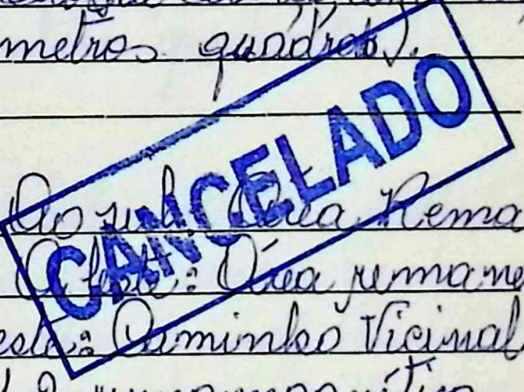 metros quadrados).
CANCELADO
Ao sul: Área Rema
Área remane
este: Caminho Vicinal